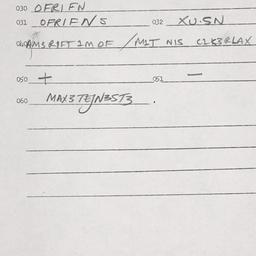 030 OFRIFN
031 OFRIENS 032 XU.SN
040 AM3RIFT IM OF / MIT NIS C1K3RLAX
050 + 051 —
060 MAX3TEJN3ST3 .